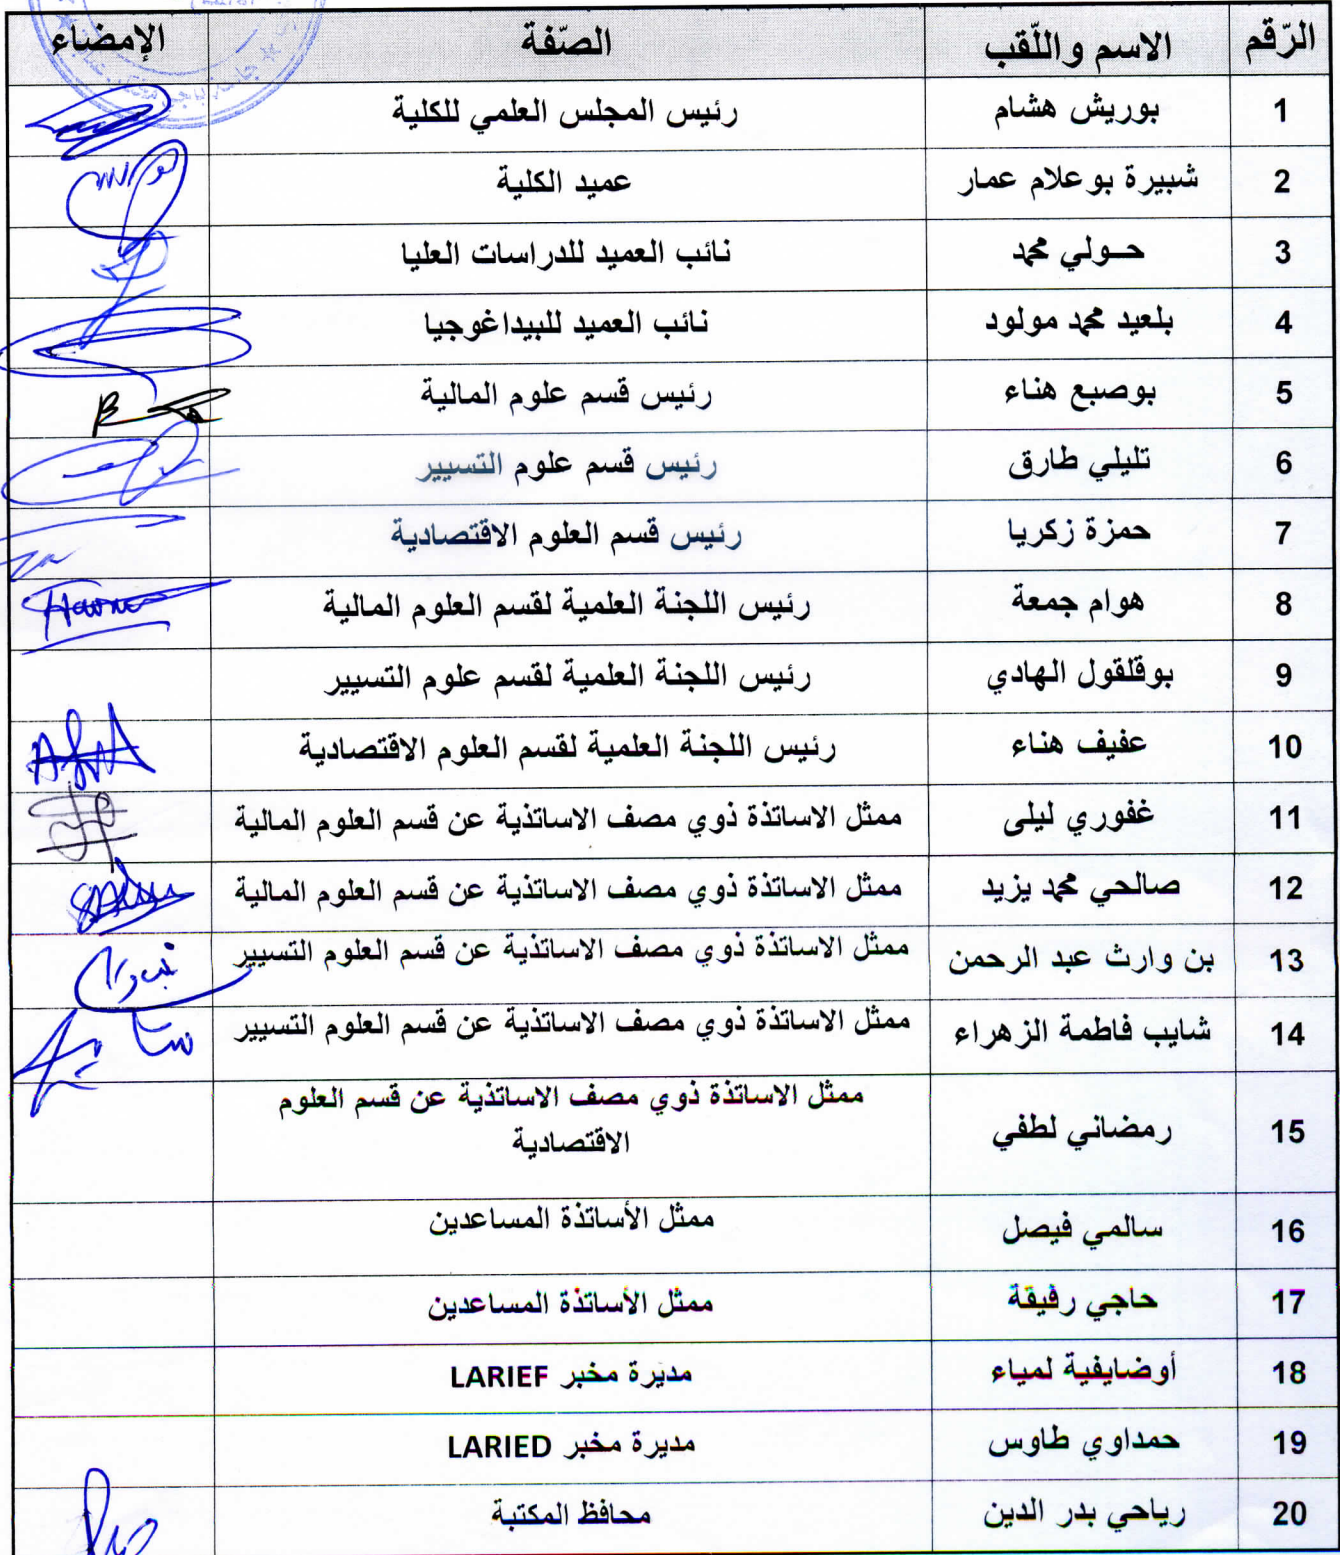 الرّقم الاسم واللّقب الصّفة الإمضاء
1 بوريش هشام رئيس المجلس العلمي للكلية
2 شبيرة بوعلام عمار عميد الكلية
3 حـولي محمد نائب العميد للدراسات العليا
4 بلعيد محمد مولود نائب العميد للبيداغوجيا
5 بوصبع هناء رئيس قسم علوم المالية
6 تليلي طارق رئيس قسم علوم التسيير
7 حمزة زكريا رئيس قسم العلوم الاقتصادية
8 هوام جمعة رئيس اللجنة العلمية لقسم العلوم المالية
9 بوقلقول الهادي رئيس اللجنة العلمية لقسم علوم التسيير
10 عفيف هناء رئيس اللجنة العلمية لقسم العلوم الاقتصادية
11 غفوري ليلى ممثل الاساتذة ذوي مصف الاساتذية عن قسم العلوم المالية
12 صالحي محمد يزيد ممثل الاساتذة ذوي مصف الاساتذية عن قسم العلوم المالية
13 بن وارث عبد الرحمن ممثل الاساتذة ذوي مصف الاساتذية عن قسم العلوم التسيير
14 شايب فاطمة الزهراء ممثل الاساتذة ذوي مصف الاساتذية عن قسم العلوم التسيير
15 رمضاني لطفي ممثل الاساتذة ذوي مصف الاساتذية عن قسم العلوم
الاقتصادية
16 سالمي فيصل ممثل الأساتذة المساعدين
17 حاجي رفيقة ممثل الأساتذة المساعدين
18 أوضايفية لمياء مديرة مخبر LARIEF
19 حمداوي طاوس مديرة مخبر LARIED
20 رياحي بدر الدين محافظ المكتبة